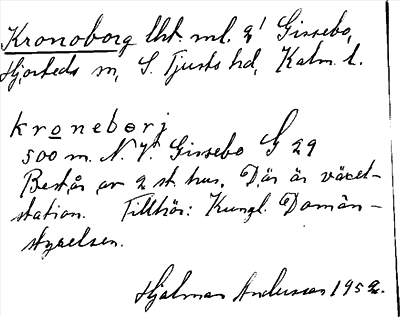 Kronoborg lht. ml. 2' Gissebo,
Hjorteds sn, S. Tjusts hd, Kalm. l.
kroneborj
500 m. N.V. Gissebo G 29
Består av 2 st. hus. Där är växel-
station. Tillhör: Kungl. Domän-
styrelsen.
Hjalmar Andersson 1952.